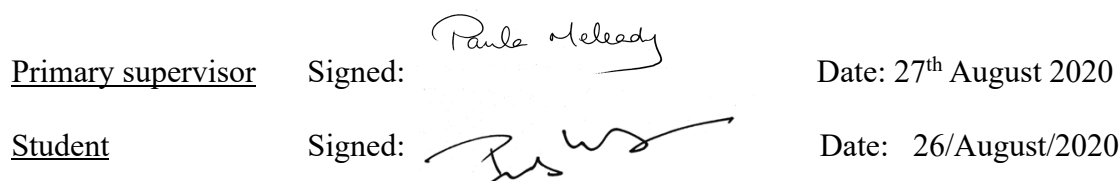 Primary supervisor Signed: Paula Meleady Date: 27th August 2020
Student Signed: Date: 26/August/2020